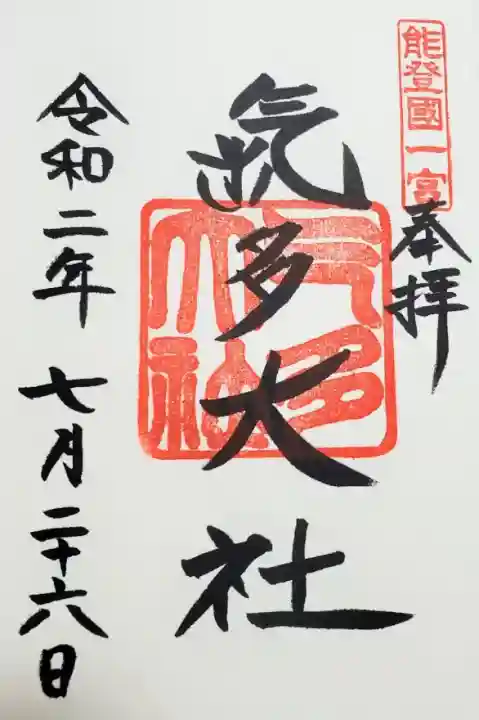 能登國一宮
奉拝
氣多大社
气多大社
令和二年 七月二十六日